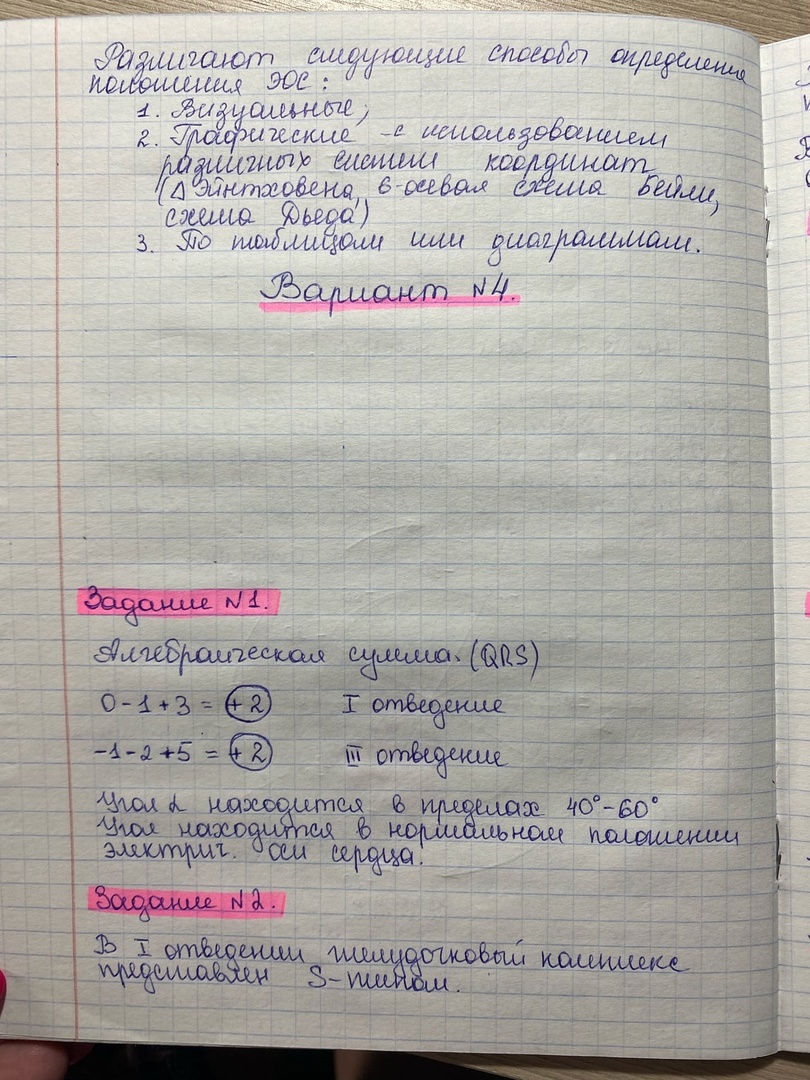 Различают следующие способы определения
положения ЭОС:
1. Визуальные;
2. Графические - с использованием
различных систем координат
(Δ Эйнтховена, 6-осевая схема Бейли,
схема Дьеда)
3. По таблицам или диаграммам.
Вариант №4.
Задание №1.
Алгебраическая сумма. (QRS)
0-1+3 = +2 I отведение
-1-2+5 = +2 III отведение
Угол α находится в пределах 40°-60°
Угол находится в нормальном положении
электрич. оси сердца.
Задание №2.
В I отведении желудочковый комплекс
представлен S-типом.